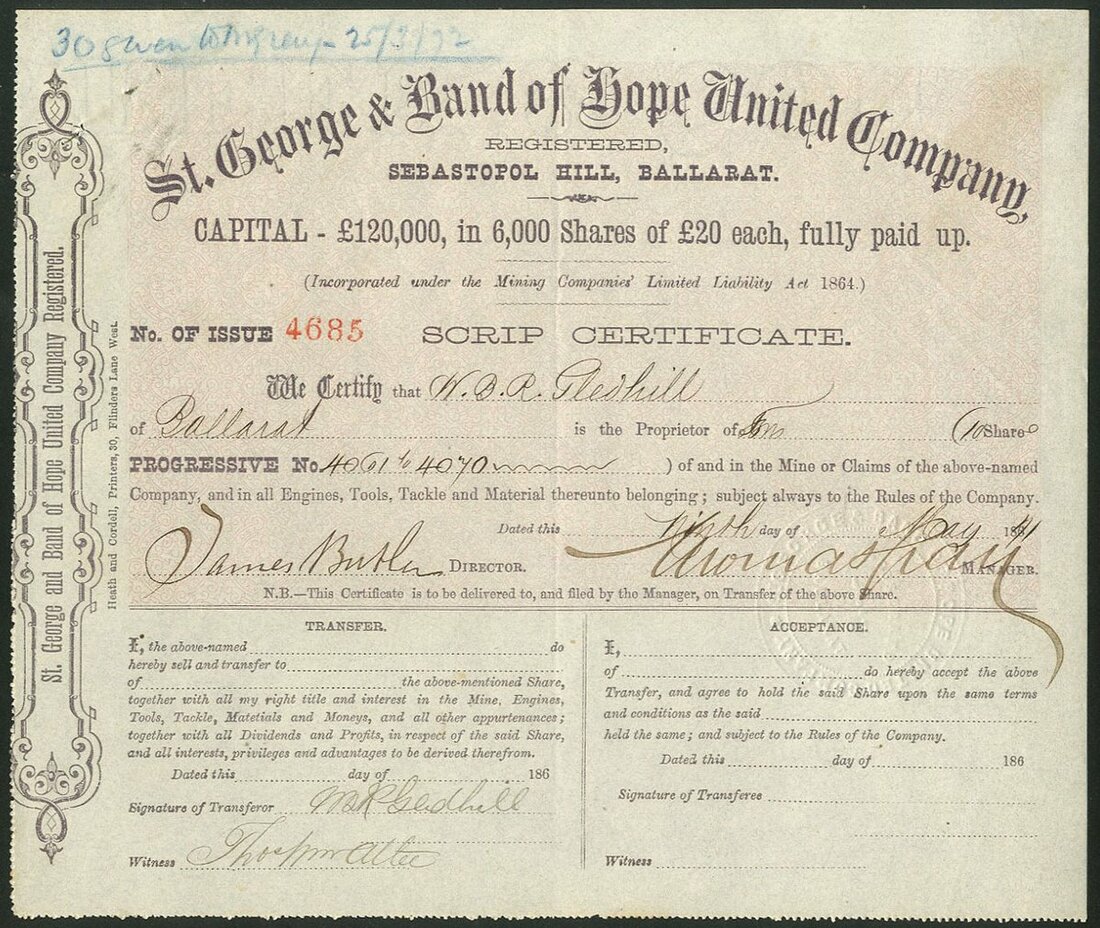 25/3/92
St. George & Band of Hope United Company,
REGISTERED,
SEBASTOPOL HILL, BALLARAT.
CAPITAL - £120,000, in 6,000 Shares of £20 each, fully paid up.
(Incorporated under the Mining Companies' Limited Liability Act 1864.)
No. OF ISSUE 4685 SCRIP CERTIFICATE.
We Certify that W. B. R. Gledhill
of Ballarat is the Proprietor of Ten (10 Share
PROGRESSIVE No. 4061 to 4070 ) of and in the Mine or Claims of the above-named
Company, and in all Engines, Tools, Tackle and Material thereunto belonging; subject always to the Rules of the Company.
Dated this Ninth day of May 18
James Butler DIRECTOR. Thomas MANAGER.
N.B.—This Certificate is to be delivered to, and filed by the Manager, on Transfer of the above Share.
TRANSFER.
I, the above-named do
hereby sell and transfer to
of the above-mentioned Share,
together with all my right title and interest in the Mine, Engines,
Tools, Tackle, Matetials and Moneys, and all other appurtenances;
together with all Dividends and Profits, in respect of the said Share,
and all interests, privileges and advantages to be derived therefrom.
Dated this day of 186
Signature of Transferor Gledhill
Witness
ACCEPTANCE.
I,
of do hereby accept the above
Transfer, and agree to hold the said Share upon the same terms
and conditions as the said
held the same; and subject to the Rules of the Company.
Dated this day of 186
Signature of Transferee
Witness
St. George and Band of Hope United Company Registered.
Heath and Cordell, Printers, 30, Flinders Lane West.